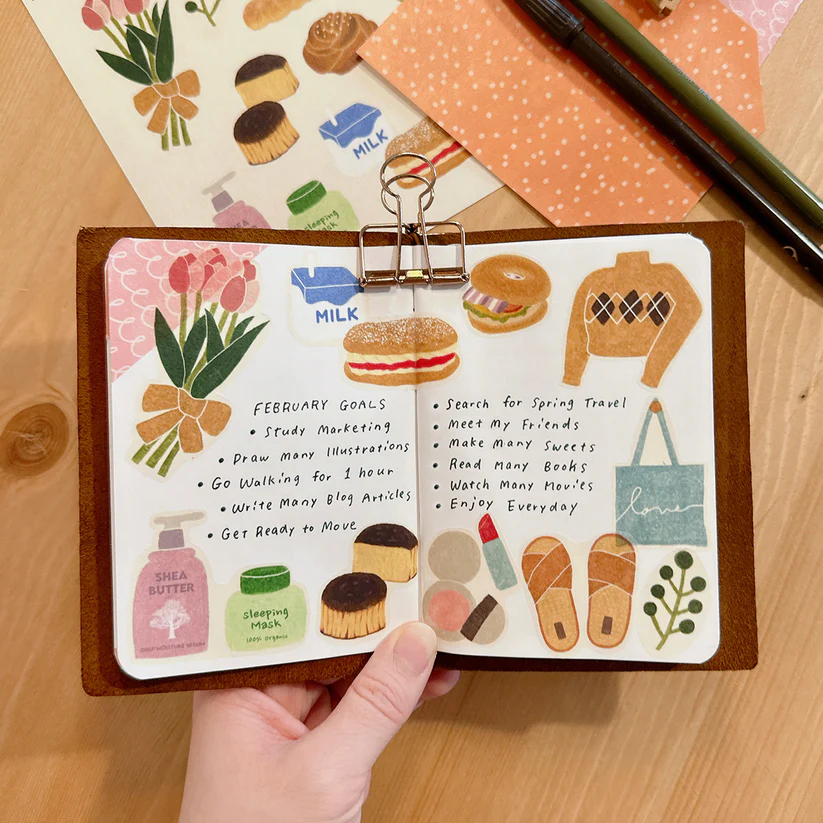 MILK
sleeping
MILK
FEBRUARY GOALS
• Study Marketing
• Draw many Illustrations
• Go Walking for 1 hour
• Write Many Blog Articles
• Get Ready to Move
SHEA
BUTTER
sleeping
Mask
100% organic
• Search for Spring Travel
• Meet My Friends
• Make Many Sweets
• Read Many Books
• Watch Many Movies
• Enjoy Everyday
love